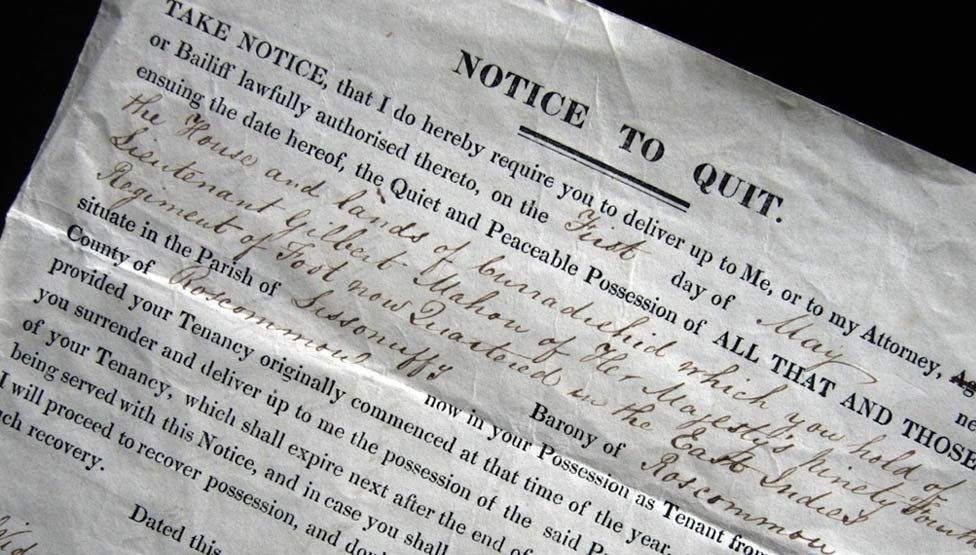 NOTICE TO QUIT.
TAKE NOTICE, that I do hereby require you to deliver up to Me, or to my Attorney,
or Bailiff lawfully authorised thereto, on the First day of May
ensuing the date hereof, the Quiet and Peaceable Possession of ALL THAT AND THOSE
the House and lands of which you hold of
Lieutenant Gilbert Mahon of Her Majesty's Ninety Fourth
Regiment of Foot now Quartered in the East Indies
situate in the Parish of Lissonuffy Barony of Roscommon
County of Roscommon now in your Possession as Tenant from
provided your Tenancy originally commenced at that time of the year,
you surrender and deliver up to me the possession of the said
of your Tenancy, which shall expire next after the end of
being served with this Notice, and in case you shall
I will proceed to recover possession, and
such recovery.
Dated this